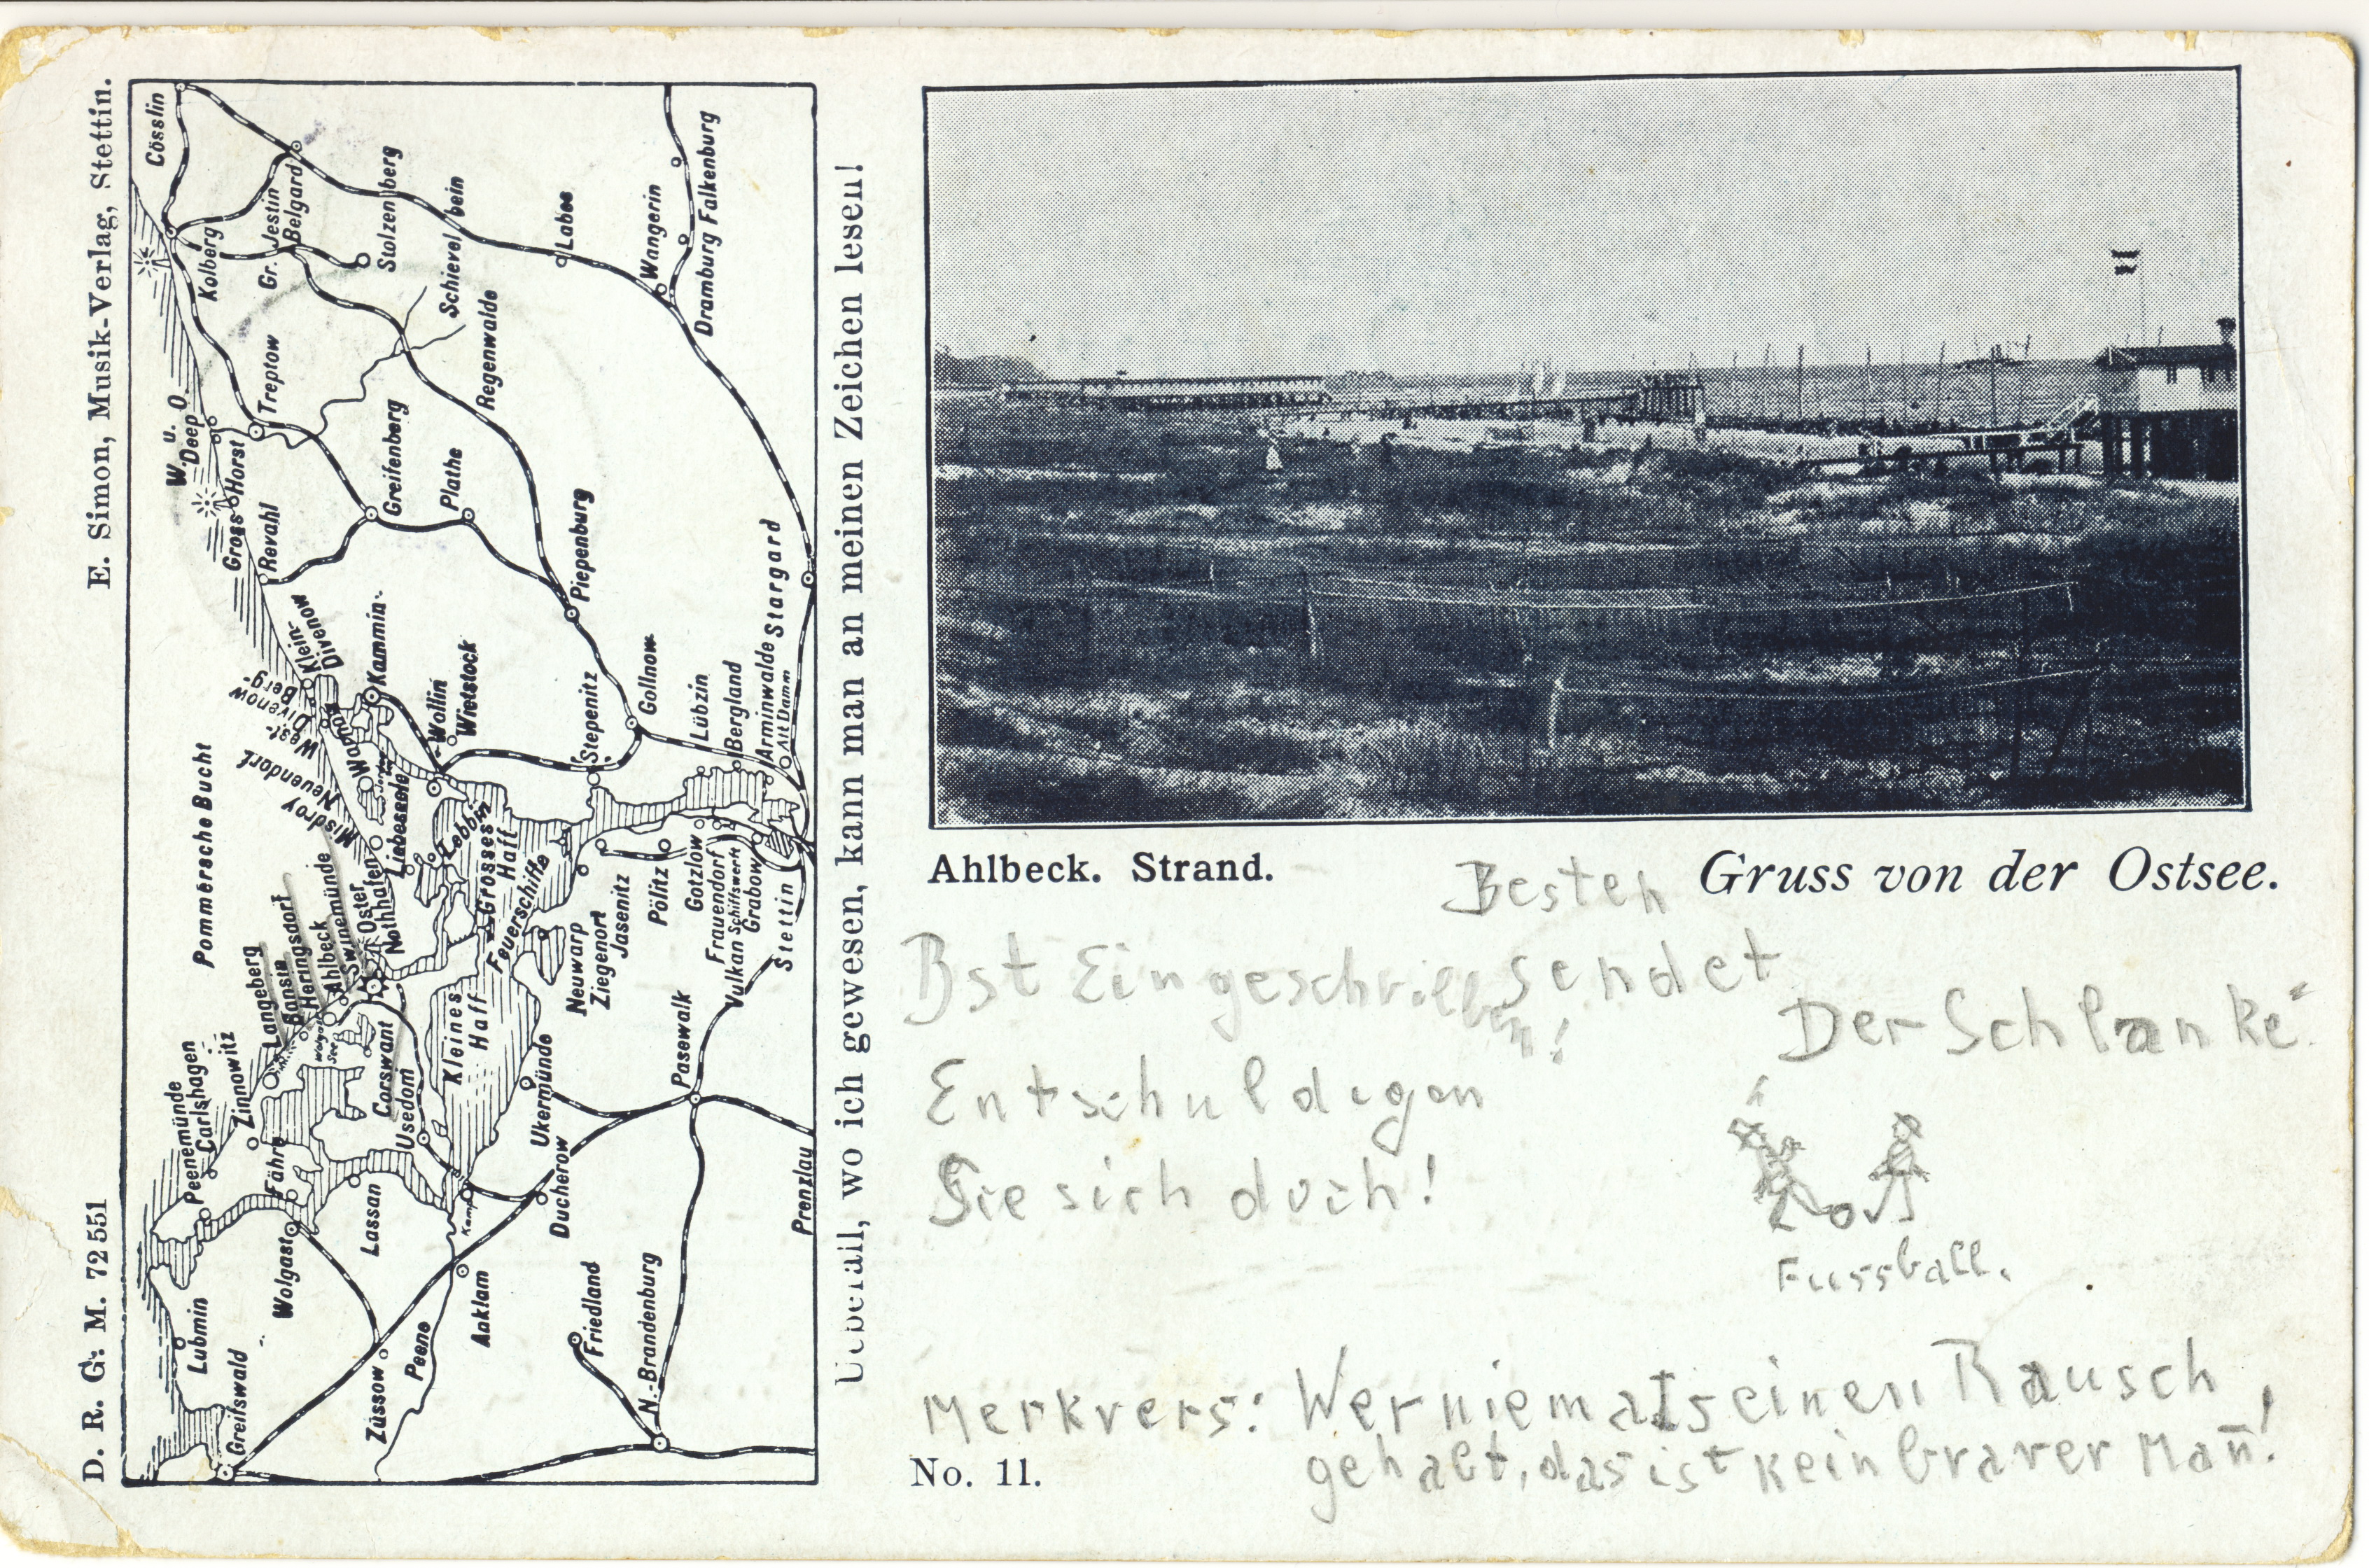 D. R. G. M. 72551
E. Simon, Musik-Verlag, Stettin.
Cösslin
Kolberg
Gr. Jestin
Belgard
Stolzenberg
Schievelbein
Labes
Wangerin
Dramburg Falkenburg
Treptow
Regenwalde
W. u. O.
Deep
Gross Horst
Revahl
Greifenberg
Plathe
Piepenburg
Klein-
Divenow
Berg-
Divenow
West-
Neuendorf
Misdroy
Kammin
Wollin
Wietstock
Stepenitz
Gollnow
Lübzin
Bergland
Arminwalde
Alt Damm
Stargard
Pommersche Bucht
Liebeseele
Lebbin
Grosses
Haff
Feuerschiffe
Langeberg
Bansin
Heringsdorf
Ahlbeck
Swinemünde
Oster
Nothhafen
Neuwarp
Ziegenort
Jasenitz
Pölitz
Gotzlow
Frauendorf
Vulkan Schiffswerft
Grabow
Stettin
Peenemünde
Carlshagen
Zinnowitz
Corswant
Usedom
Kleines
Haff
Ukermünde
Pasewalk
Fähre
Wolgast
Lassan
Ducherow
Prenzlau
Lubmin
Greifswald
Züssow
Peene
Anklam
Friedland
N.-Brandenburg
Ueberall, wo ich gewesen, kann man an meinen Zeichen lesen!
Ahlbeck. Strand.
Gruss von der Ostsee.
Besten
sendet
Der Schlanke
Ist Eingeschrieben!
Entschuldigen
Sie sich doch!
Fussball.
Merkvers: Wer niemals einen Rausch
gehabt, das ist kein braver Man̄!
No. 11.